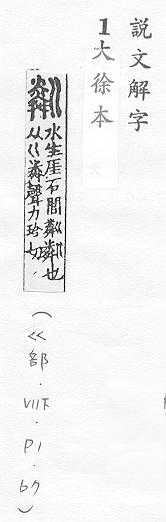 説文解字
1大徐本
粼
水生厓石間粼粼也
从巜粦聲力珍切
(巜部・VII下・P1・b7)